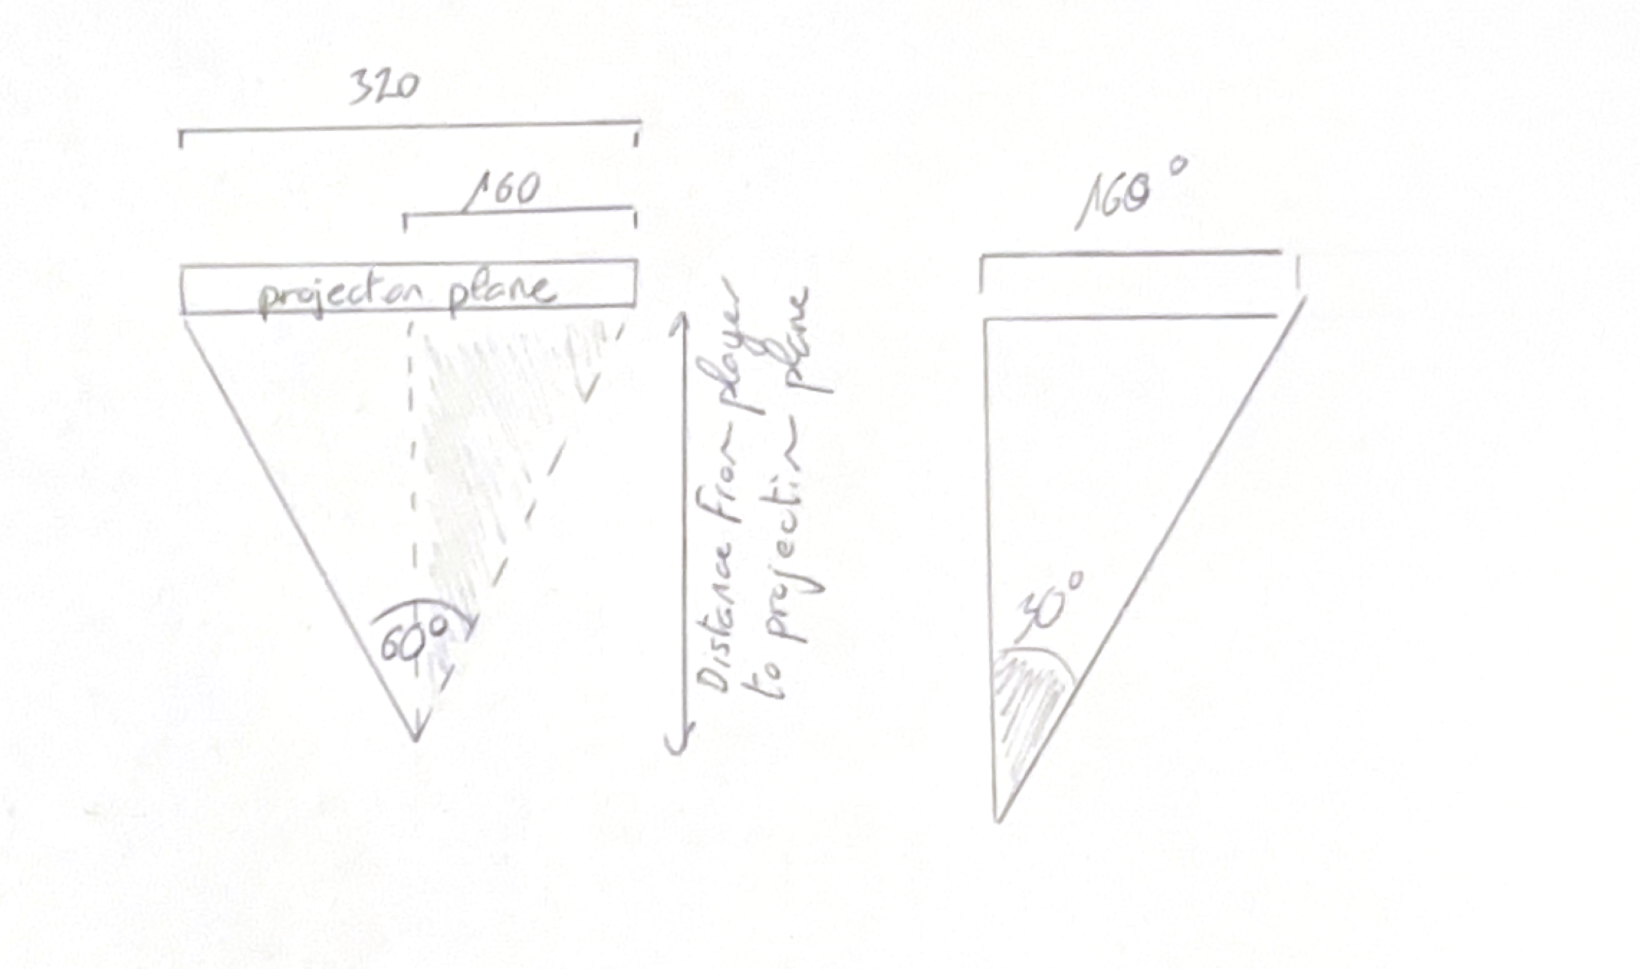 320
160
projecton plane
60°
Distance From player
to projection plane
160°
30°